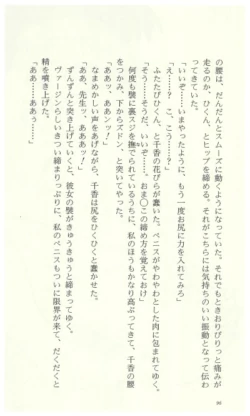 の腰は、だんだんとスムーズに動くようになっていた。それでもときおりぴりっと痛みが
走るのか、ひくん、とヒップを締める。それがこちらには気持ちのいい振動となって伝わ
ってきていた。
「いいぞ、いまやったように、もう一度お尻に力を入れてみろ」
「え……？　こ、こう……？」
ふたたびひくん、と千香の花びらが蠢いた。ペニスがやわやわとした肉に包まれてゆく。
「そう……そうだ、いいぞ……。おま〇この締め方を覚えておけ」
何度も襞に裏スジを撫でられているうちに、私のほうもかなり高ぶってきて、千香の腰
をつかみ、下からズドン、と突いてやった。
「ああッ、ああンッ！」
なまめかしい声をあげながら、千香は尻をひくひくと蠢かせた。
「ああ、先生ッ、ああああッ！」
ずんずんと突き上げていくと、彼女の襞がきゅうきゅうと締まってゆく。
ヴァージンらしいきつい締まりっぷりに、私のペニスもついに限界が来て、だくだくと
精を噴き上げた。
「ああ……ああぅ……」